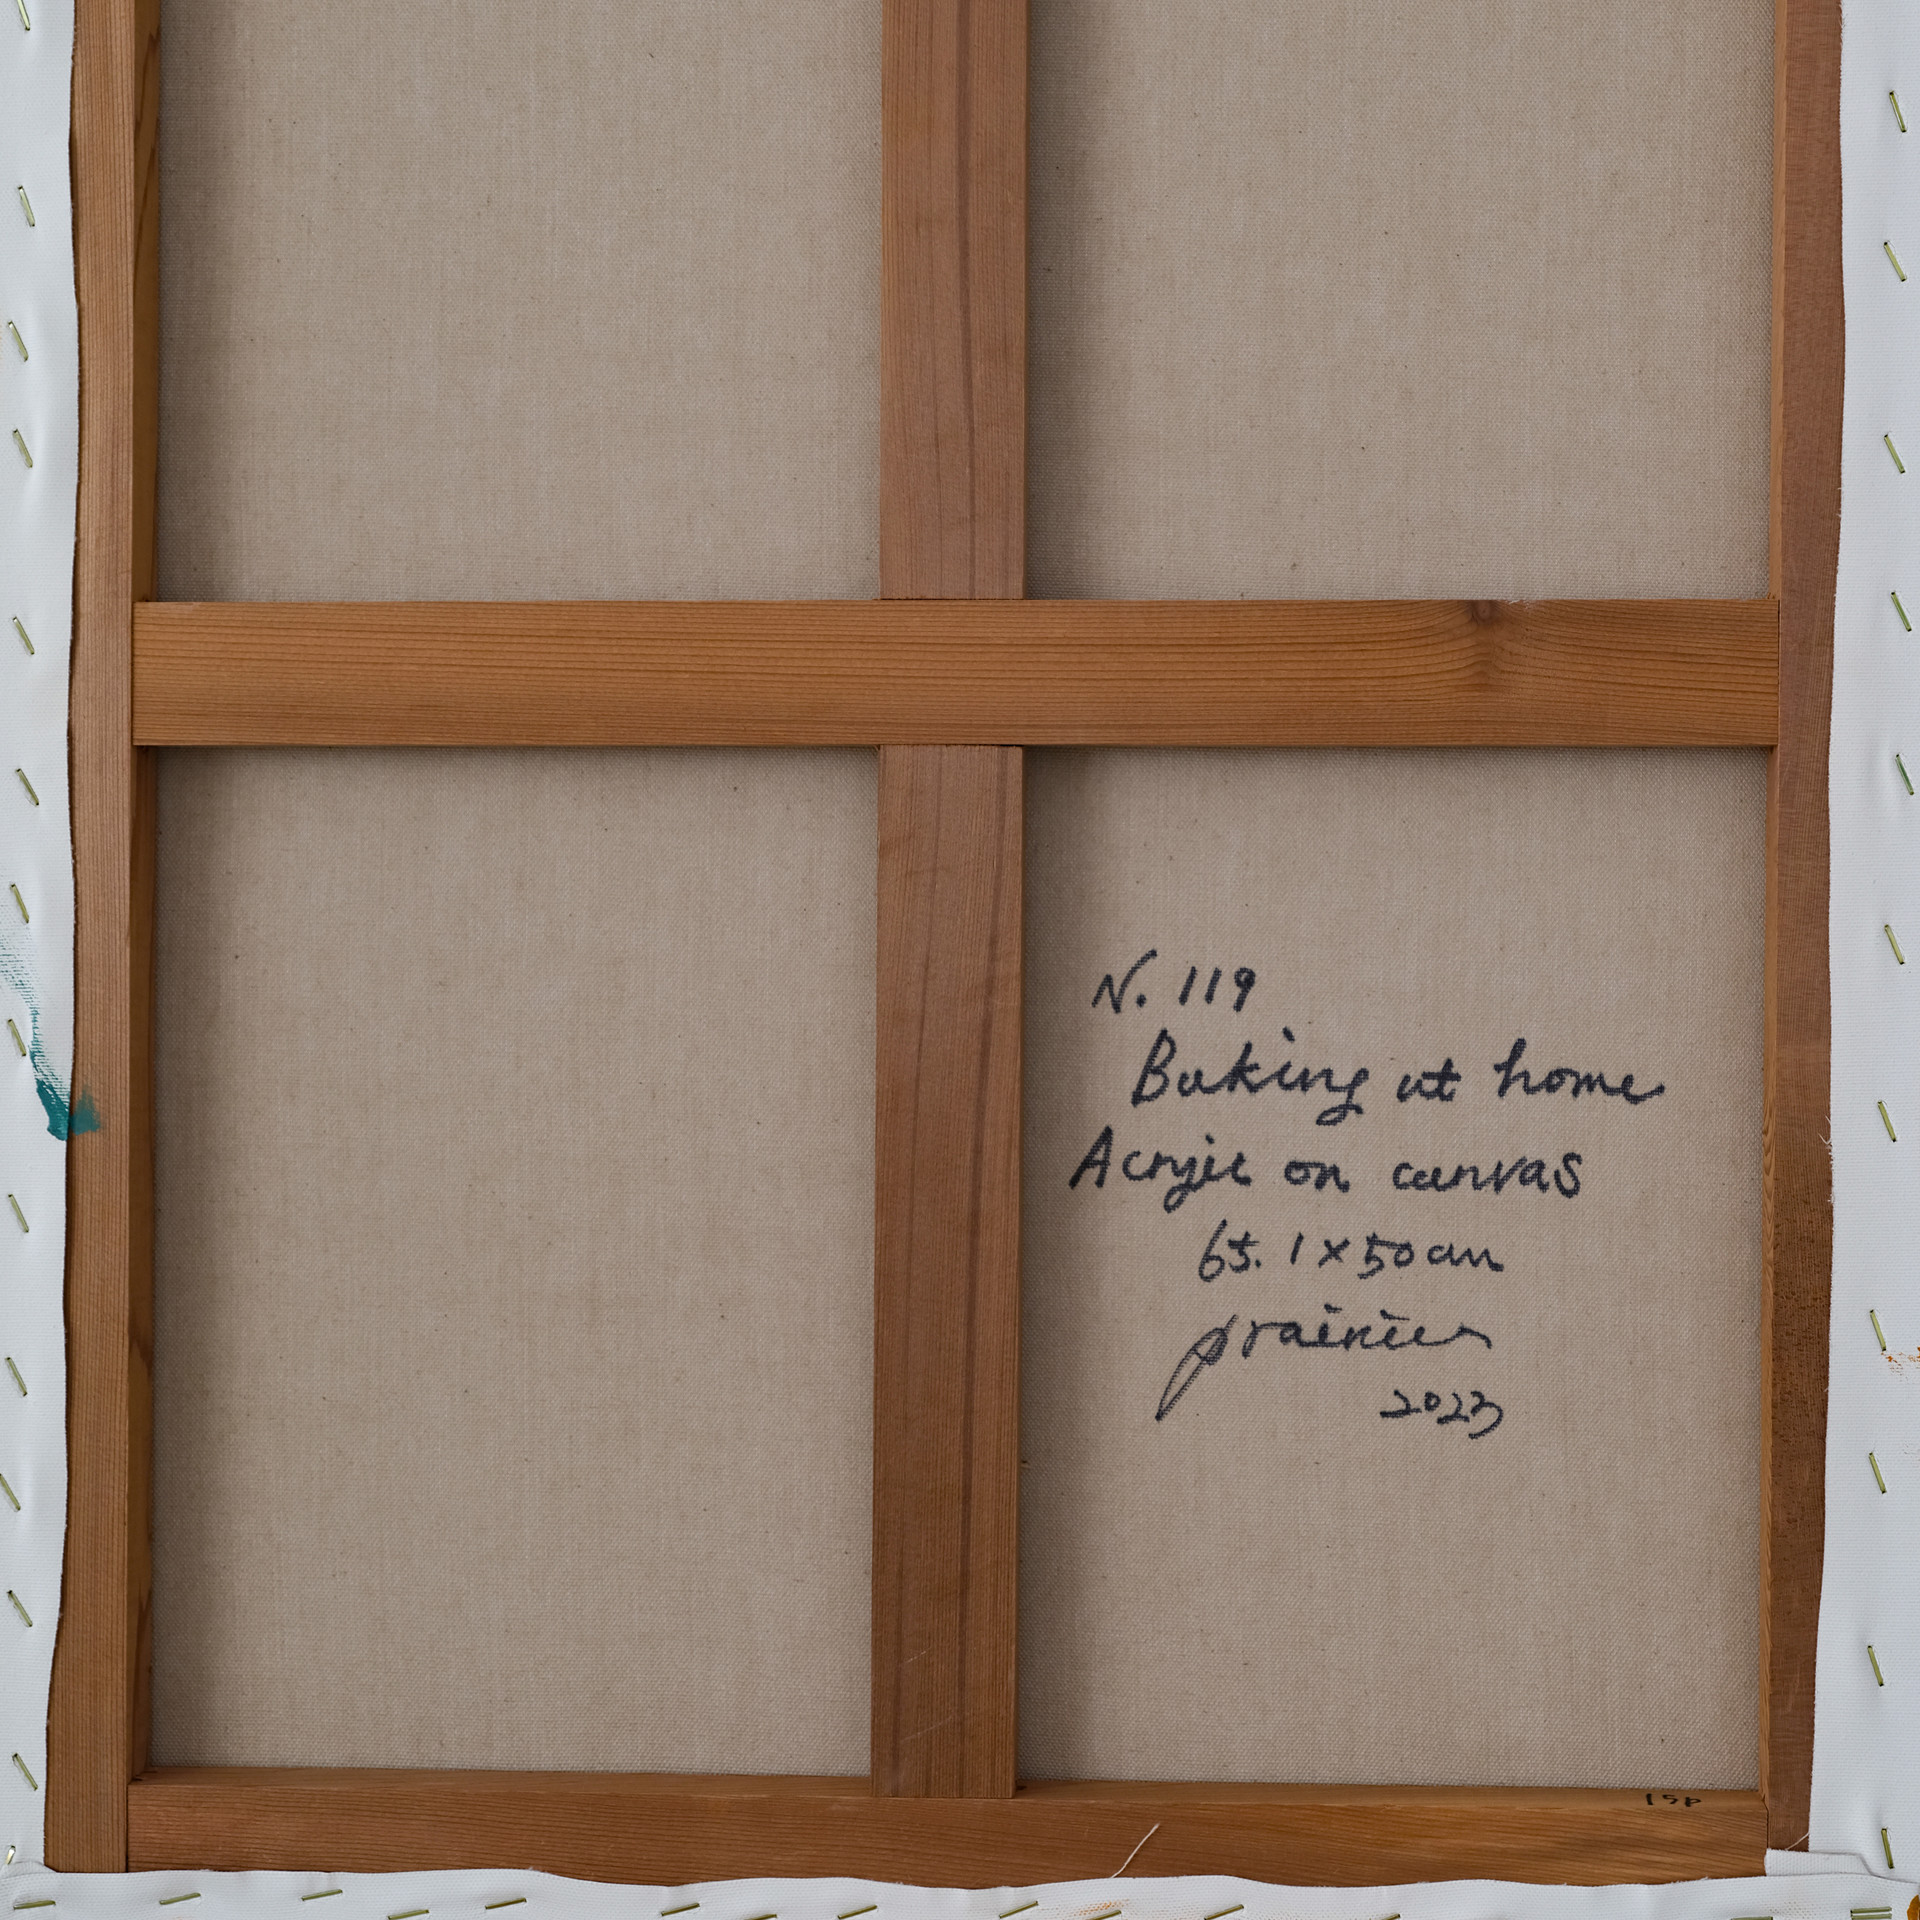 N. 119
Baking at home
Acryic on canvas
65.1 x 50 cm
prairies
2023
15P